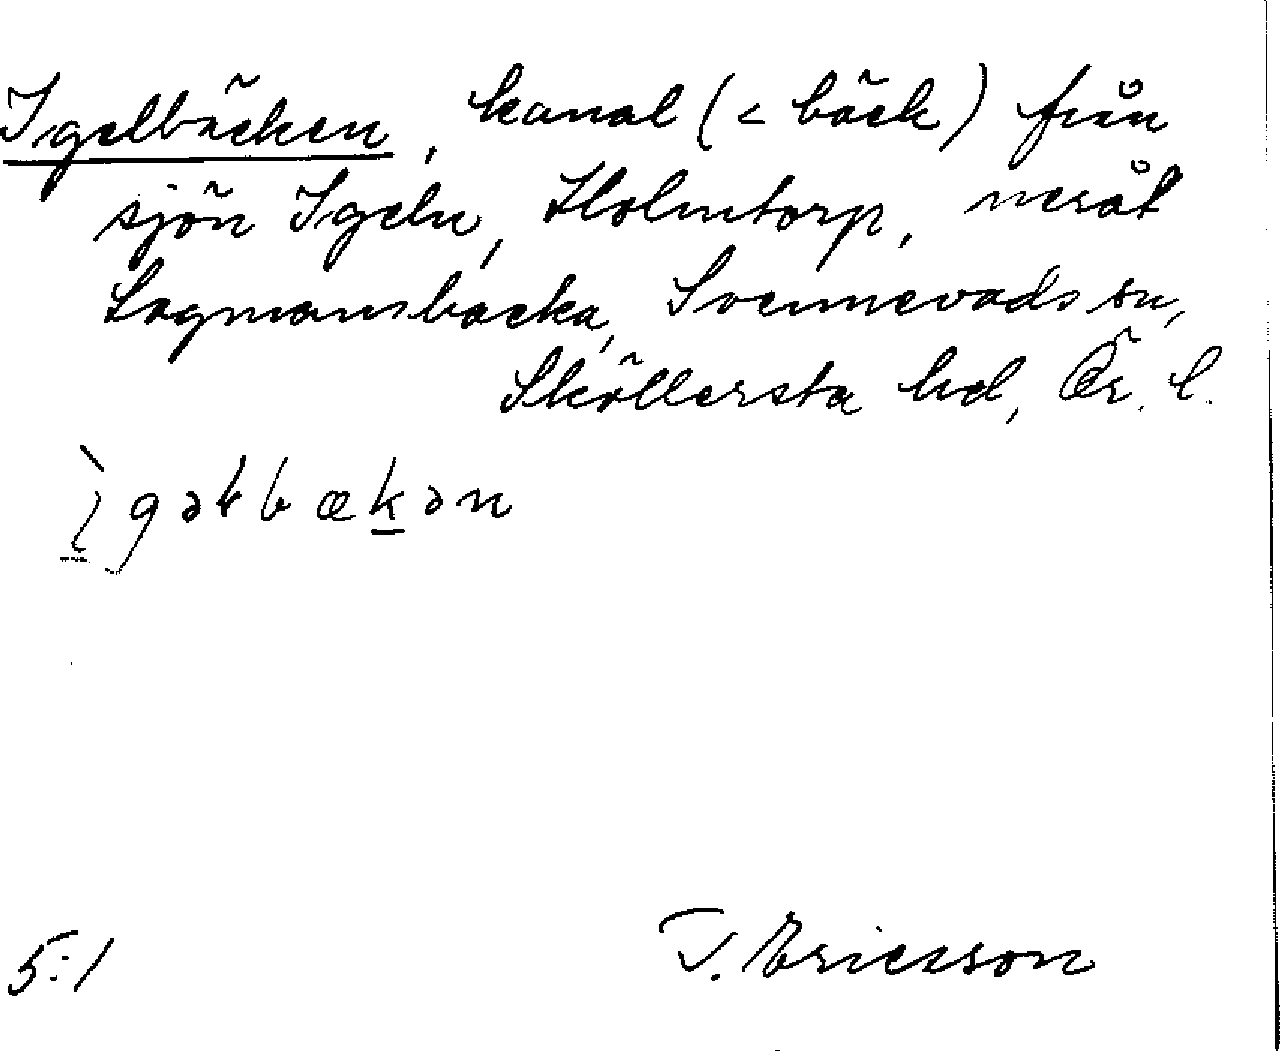 Igelbäcken, kanal (< bäck) från
sjön Igeln, Holmtorp, neråt
Lagmansbacka, Svennevads sn,
Sköllersta hd, Ör. l.
ìgəɫbækən
5:1
T. Ericsson